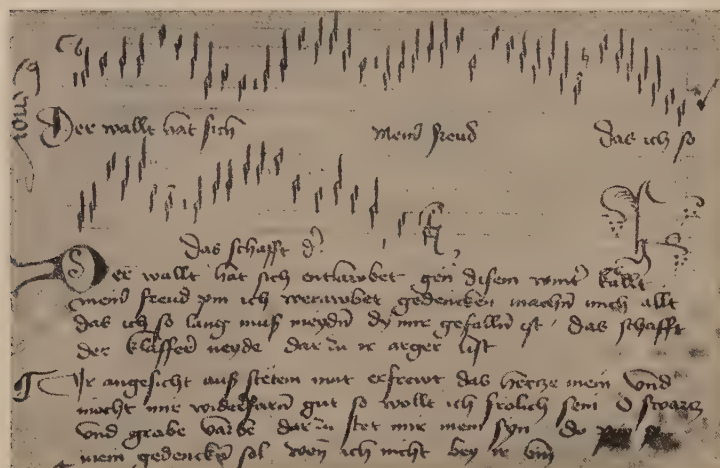 Tenor
Der wallt hat sich mein freud das ich so
das schafft d
Der wallt hat sich entlawbet gen disem wint kallt
mein freud pin ich werawbet gedencken machn mich allt
das ich so lang muß meydn dy mir gefalln ist das schafft
der klaffer neyde darzu ir arger list
Ir angesicht auß stetem mut erfrewt das hertze mein vnd
mocht mir widerfarn gut so wollt ich frolich sein O swartz
vnd grabe varbe darzu stet mir mein syn do
mein gedencken sol wen ich nicht bey ir bin